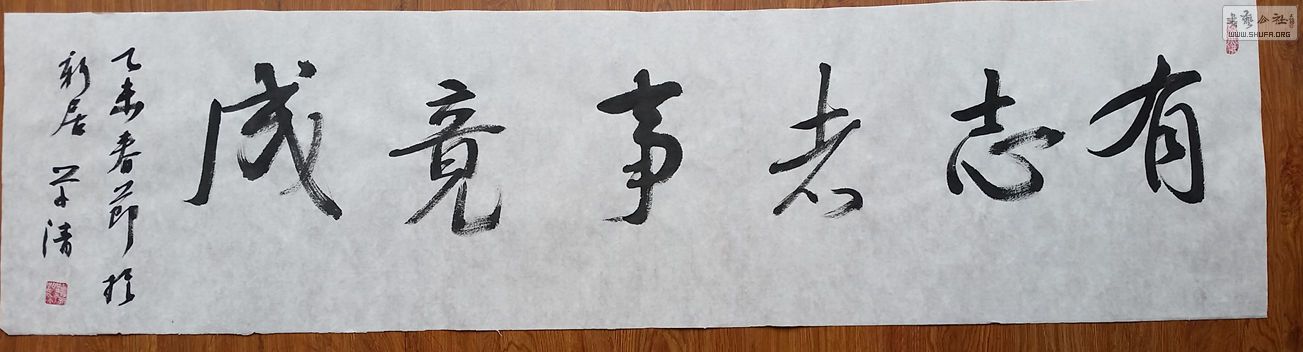 有志者事竟成
乙未春节於
新居 学清
書艺公社
WWW.SHUFA.ORG